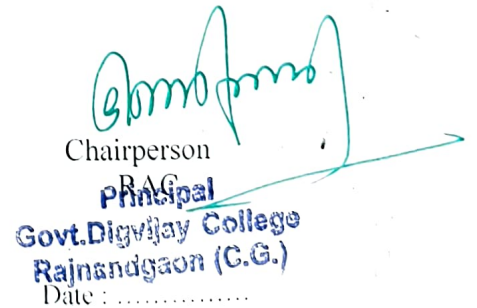 Chairperson
RAC
Principal
Govt.Digvijay College
Rajnandgaon (C.G.)
Date : ...............